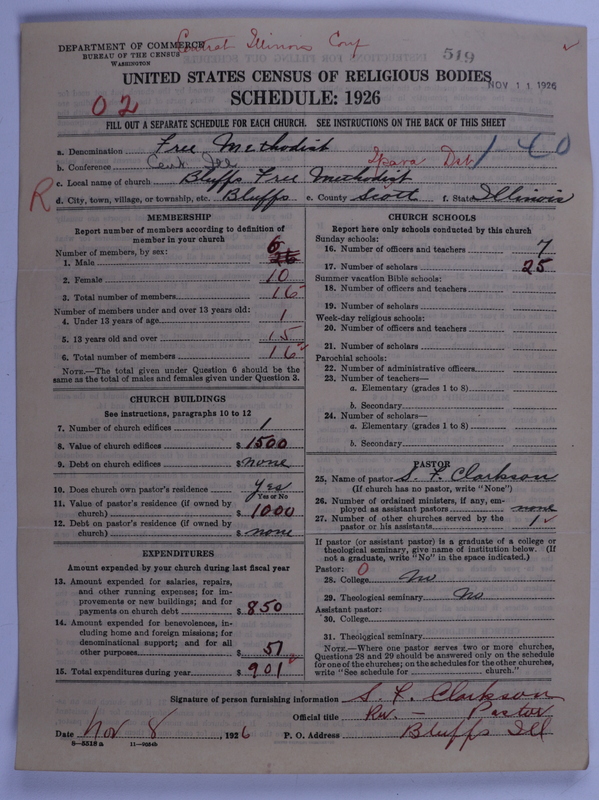 DEPARTMENT OF COMMERCE
BUREAU OF THE CENSUS
WASHINGTON
Central Illinois Conf
519
NOV 11 1926
UNITED STATES CENSUS OF RELIGIOUS BODIES
SCHEDULE: 1926
02
FILL OUT A SEPARATE SCHEDULE FOR EACH CHURCH. SEE INSTRUCTIONS ON THE BACK OF THIS SHEET
a. Denomination Free Methodist
b. Conference Cent Ill
140
c. Local name of church Bluffs Free Methodist
R
d. City, town, village, or township, etc. Bluffs e. County Scott f. State Illinois
MEMBERSHIP
Report number of members according to definition of
member in your church
Number of members, by sex:
1. Male 6
2. Female 10
3. Total number of members 16
Number of members under and over 13 years old:
4. Under 13 years of age 1
5. 13 years old and over 15
6. Total number of members 16
NOTE.—The total given under Question 6 should be the
same as the total of males and females given under Question 3.
CHURCH BUILDINGS
See instructions, paragraphs 10 to 12
7. Number of church edifices 1
8. Value of church edifices $ 1500
9. Debt on church edifices $ none
10. Does church own pastor's residence yes
Yes or No
11. Value of pastor's residence (if owned by
church) $ 1000
12. Debt on pastor's residence (if owned by
church) $ none
EXPENDITURES
Amount expended by your church during last fiscal year
13. Amount expended for salaries, repairs,
and other running expenses; for im-
provements or new buildings; and for
payments on church debt $ 850
14. Amount expended for benevolences, in-
cluding home and foreign missions; for
denominational support; and for all
other purposes $ 51
15. Total expenditures during year $ 901
CHURCH SCHOOLS
Report here only schools conducted by this church
Sunday schools:
16. Number of officers and teachers 7
17. Number of scholars 25
Summer vacation Bible schools:
18. Number of officers and teachers
19. Number of scholars
Week-day religious schools:
20. Number of officers and teachers
21. Number of scholars
Parochial schools:
22. Number of administrative officers
23. Number of teachers—
a. Elementary (grades 1 to 8)
b. Secondary
24. Number of scholars—
a. Elementary (grades 1 to 8)
b. Secondary
PASTOR
25. Name of pastor S. F. Clarkson
(If church has no pastor, write "None")
26. Number of ordained ministers, if any, em-
ployed as assistant pastors none
27. Number of other churches served by the
pastor or his assistants 1
If pastor (or assistant pastor) is a graduate of a college or
theological seminary, give name of institution below. (If
not a graduate, write "No" in the space indicated.)
Pastor: 0
28. College no
29. Theological seminary No
Assistant pastor:
30. College
31. Theological seminary
NOTE.—Where one pastor serves two or more churches,
Questions 28 and 29 should be answered only on the schedule
for one of the churches; on the schedules for the other churches,
write "See schedule for church."
Signature of person furnishing information S. F. Clarkson
Official title Rev. — Pastor
Date Nov 8, 1926 P. O. Address Bluffs Ill